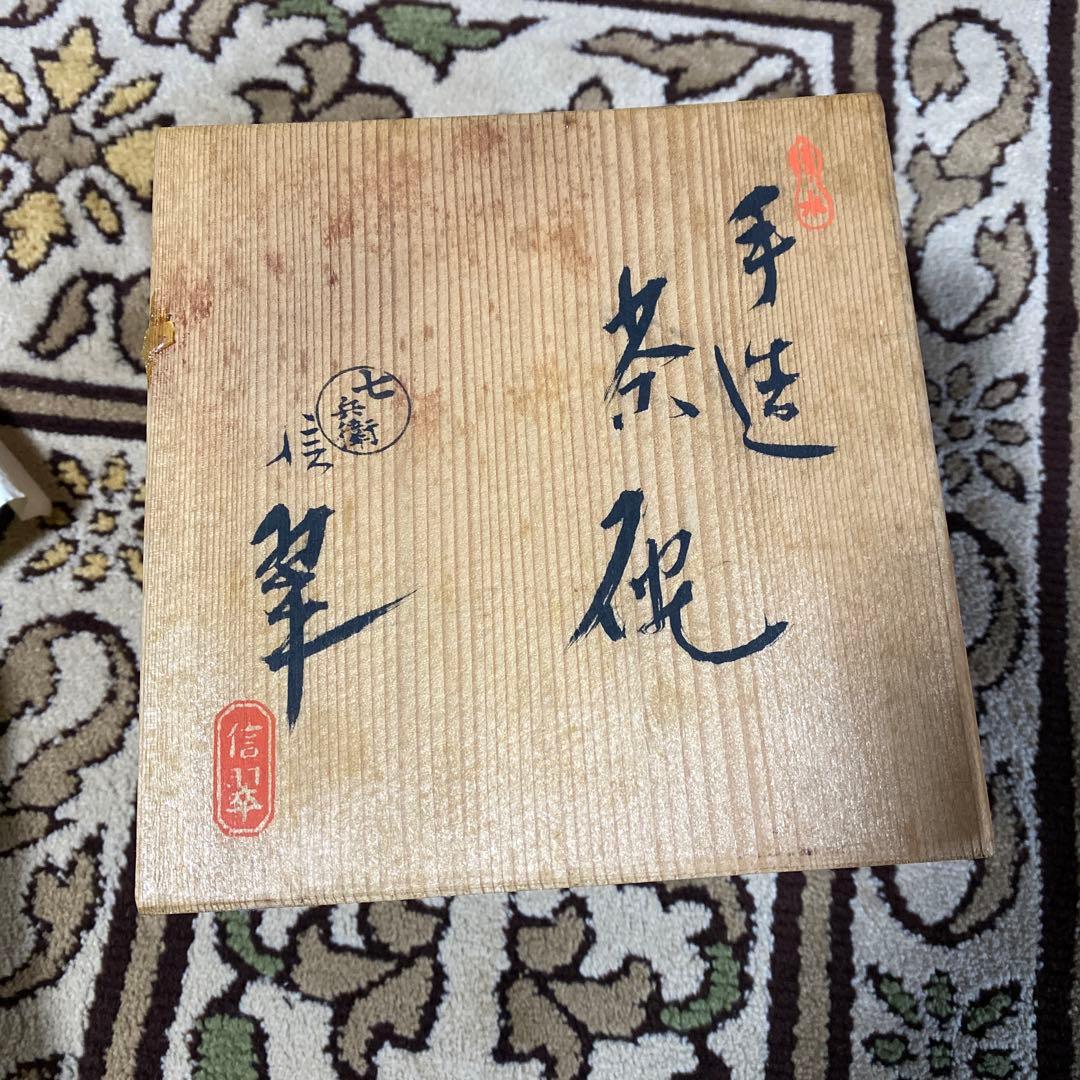 手造
茶碗
七兵衛
信翠
信翠